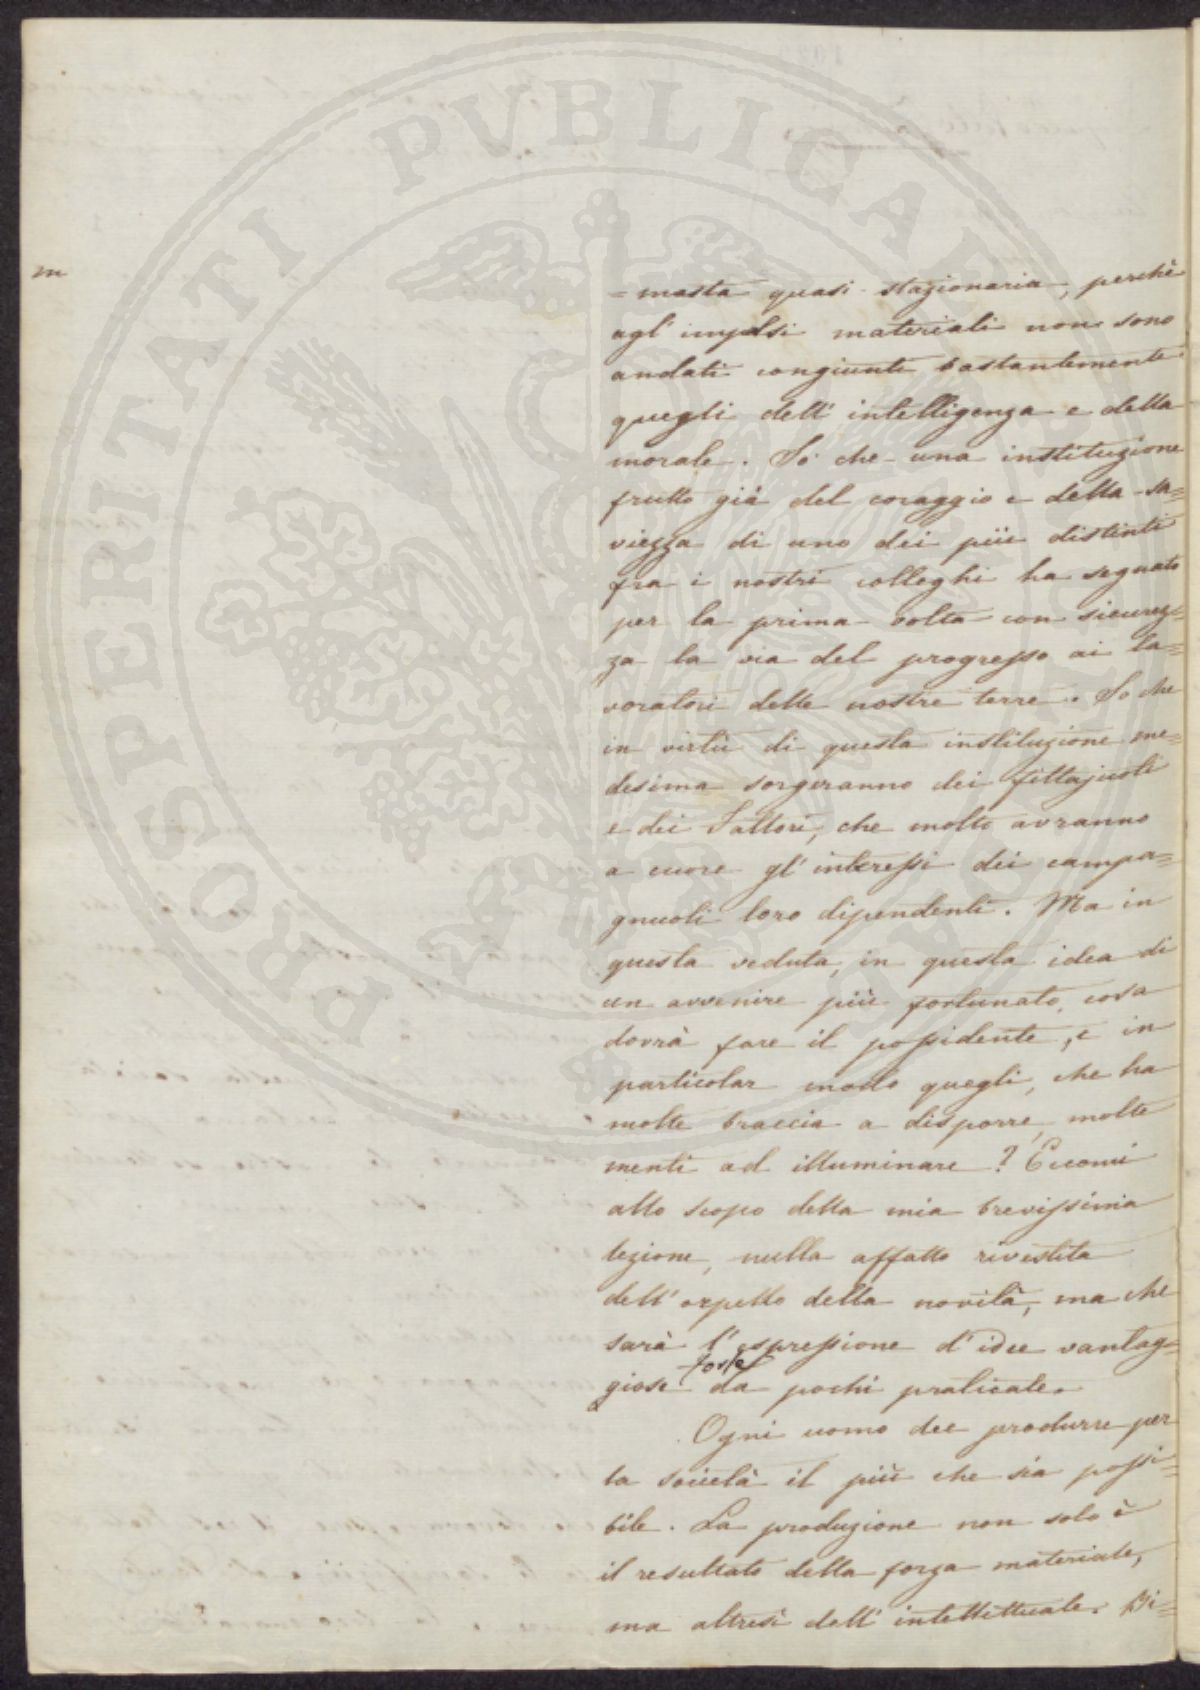 PROSPERITATI PUBLICAE AUGENDAE
m
= masta quasi stazionaria, perchè
agl' impulsi materiali non sono
andati congiunti bastantemente
quegli dell' intelligenza e della
morale. Sò che una instituzione
frutto già del coraggio e della sa=
viezza di uno dei più distinti
fra i nostri colleghi ha segnato
per la prima volta con sicurez=
za la via del progresso ai la=
voratori delle nostre terre. So che
in virtù di questa instituzione me=
desima sorgeranno dei fittajuoli
e dei Fattori, che molto avranno
a cuore gl' interessi dei campa=
gnuoli loro dipendenti. Ma in
questa veduta, in questa idea di
un avvenire più fortunato, cosa
dovrà fare il possidente, e in
particolar modo quegli, che ha
molte braccia a disporre, molte
menti ad illuminare? Eccomi
allo scopo della mia brevissima
lezione, nulla affatto rivestita
dell' orpello della novità, ma che
sarà l' espressione d' idee vantag=
giose forse da pochi praticate.
Ogni uomo dee produrre per
la società il più che sia possi=
bile. La produzione non solo è
il resultato della forza materiale,
ma altresì dell' intellettuale. Bi=